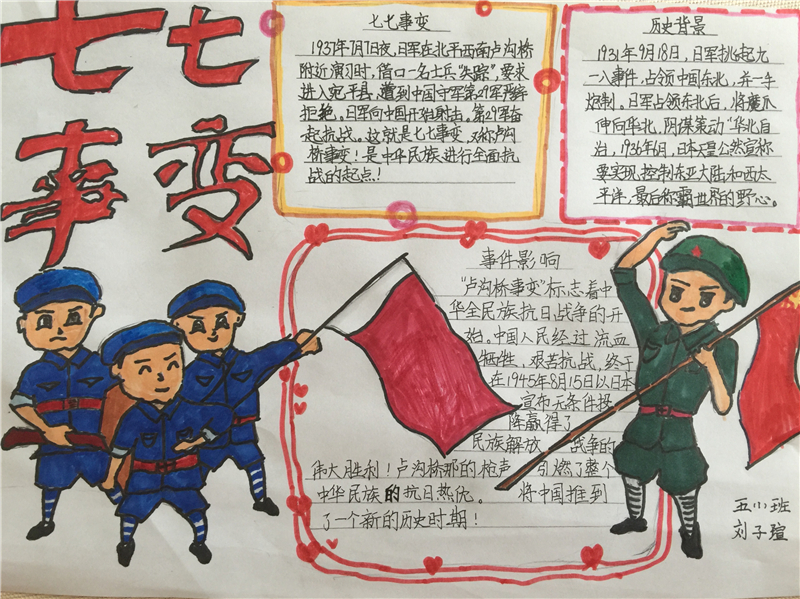 七七
事变
七七事变
1937年7月7日夜,日军在北平西南卢沟桥
附近演习时,借口一名士兵"失踪",要求
进入宛平县,遭到中国守军第29军严辞
拒绝。日军向中国开始射击,第29军奋
起抗战。这就是七七事变,又称卢沟
桥事变!是中华民族进行全面抗
战的起点!
历史背景
1931年9月18日,日军挑起九
一八事件,占领中国东北,并一手
炮制。日军占领东北后,将魔爪
伸向华北,阴谋策动"华北自
治,1936年6月,日本天皇公然宣称
要实现控制东亚大陆和西太
平洋,最后称霸世界的野心。
事件影响
"卢沟桥事变"标志着中
华全民族抗日战争的开
始。中国人民经过流血
牺牲,艰苦抗战,终于
在1945年8月15以日本
宣布无条件投
降赢得了
民族解放 战争的
伟大胜利!卢沟桥那的枪声 引燃了整个
中华民族的抗日热忱。 将中国推到
了一个新的历史时期!
五(1)班
刘子瑄